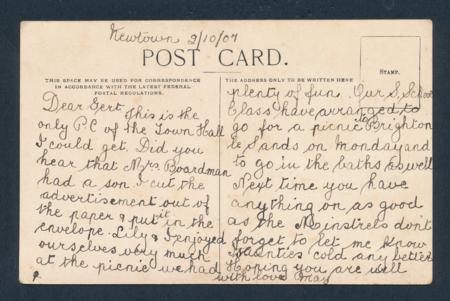 Newtown 2/10/07
POST CARD.
THIS SPACE MAY BE USED FOR CORRESPONDENCE
IN ACCORDANCE WITH THE LATEST FEDERAL
POSTAL REGULATIONS.
THE ADDRESS ONLY TO BE WRITTEN HERE
STAMP.
Dear Gert, This is the
only P.C of the Town Hall
I could get. Did you
hear that Mrs. Boardman
had a son I cut the
advertisement out of
the paper & put it in the
envelope. Lily & I enjoyed
ourselves very much
at the picnic we had
plenty of fun. Our School
Class have arranged to
go for a picnic to Brighton
le Sands on Monday and
to go in the baths as well
Next time you have
anything on as good
as the Minstrels don't
forget to let me know
Is Aunties cold any better
Hoping you are well
with love May